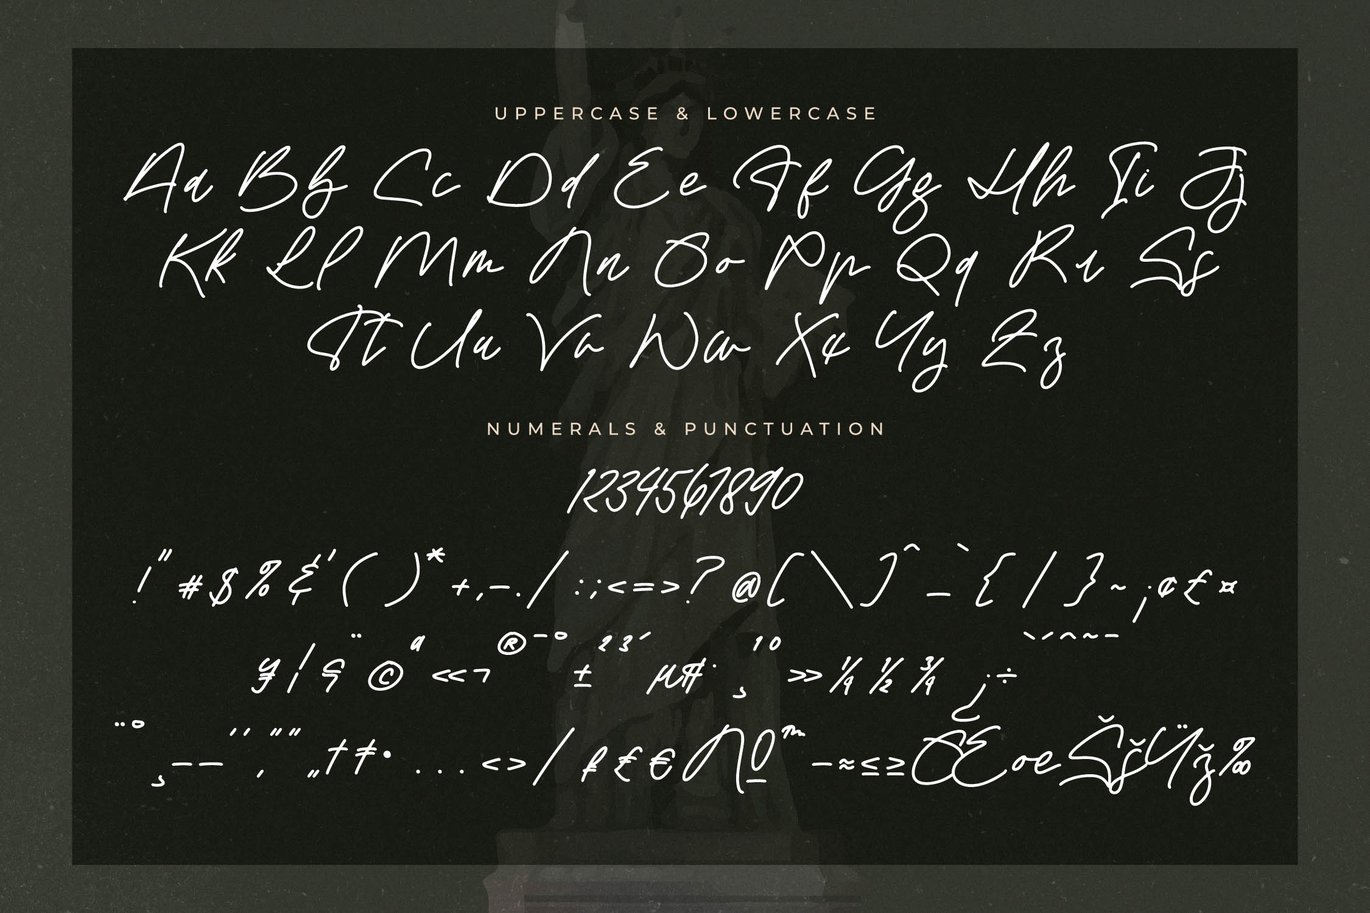 UPPERCASE & LOWERCASE
Aa Bb Cc Dd Ee Ff Gg Hh Ii Jj
Kk Ll Mm Nn Oo Pp Qq Rr Ss
Tt Uu Vv Ww Xx Yy Zz
NUMERALS & PUNCTUATION
1234567890
!"#$%&'()*+,-./:;<=>?@[\]^_`{|}~¡¢£¤
¥¦§¨©ª«¬®¯°±²³´µ¶·¸¹º»¼½¾¿÷
–—‘’‚“”„†‡•...‹›⁄₣₤€№™−≈≤≥ŒœŠšŸž‰